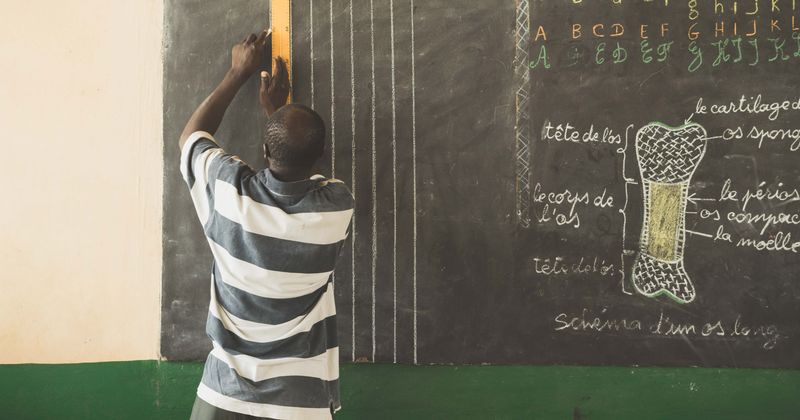 g h i j k l
A B C D E F G H I J K L
A B C D E F G H I J K L
le cartilage d
tête de l'os
os spong
le corps de
l'os
le périos
os compac
la moëlle
tête de l'os
Schéma d'un os long